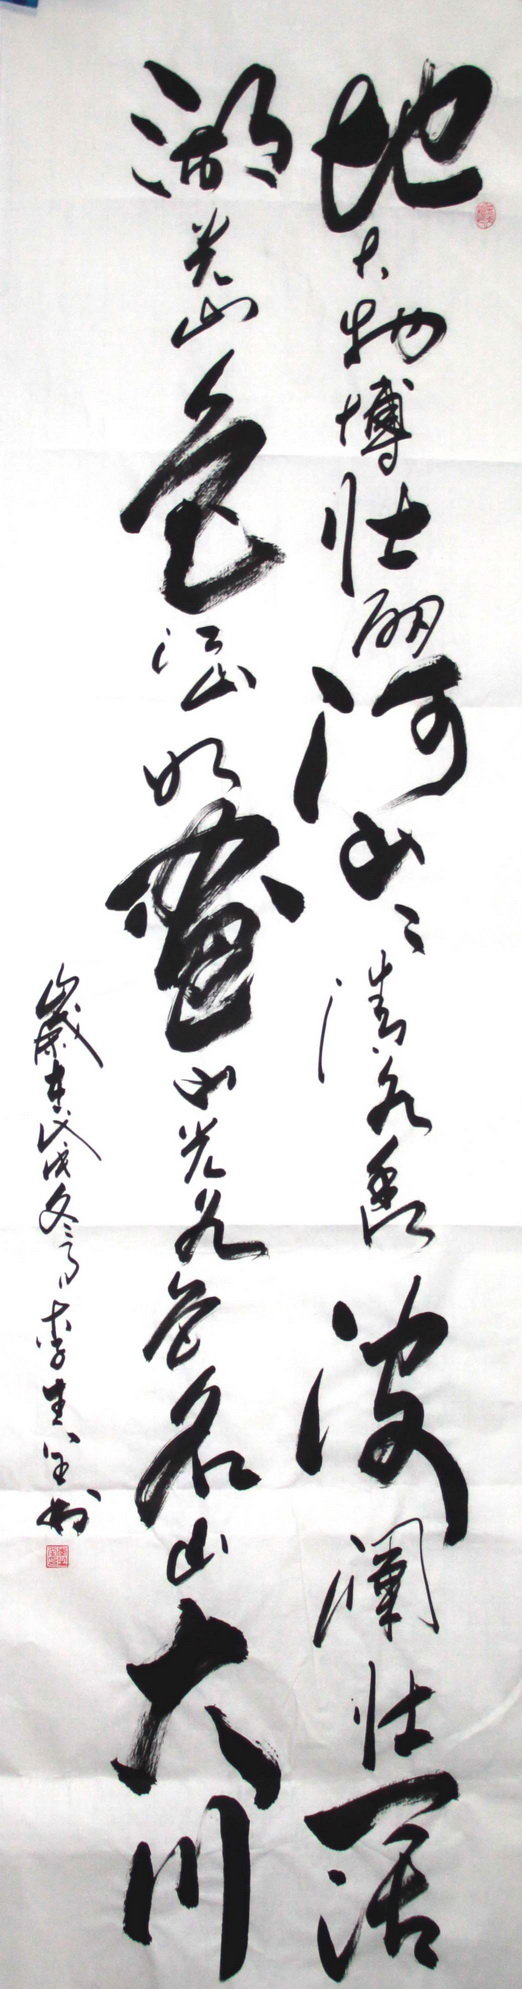 地大物博壮丽河山々清水秀波澜壮阔
湖光山色江山如画山光水色名山大川
歲戌冬月李书